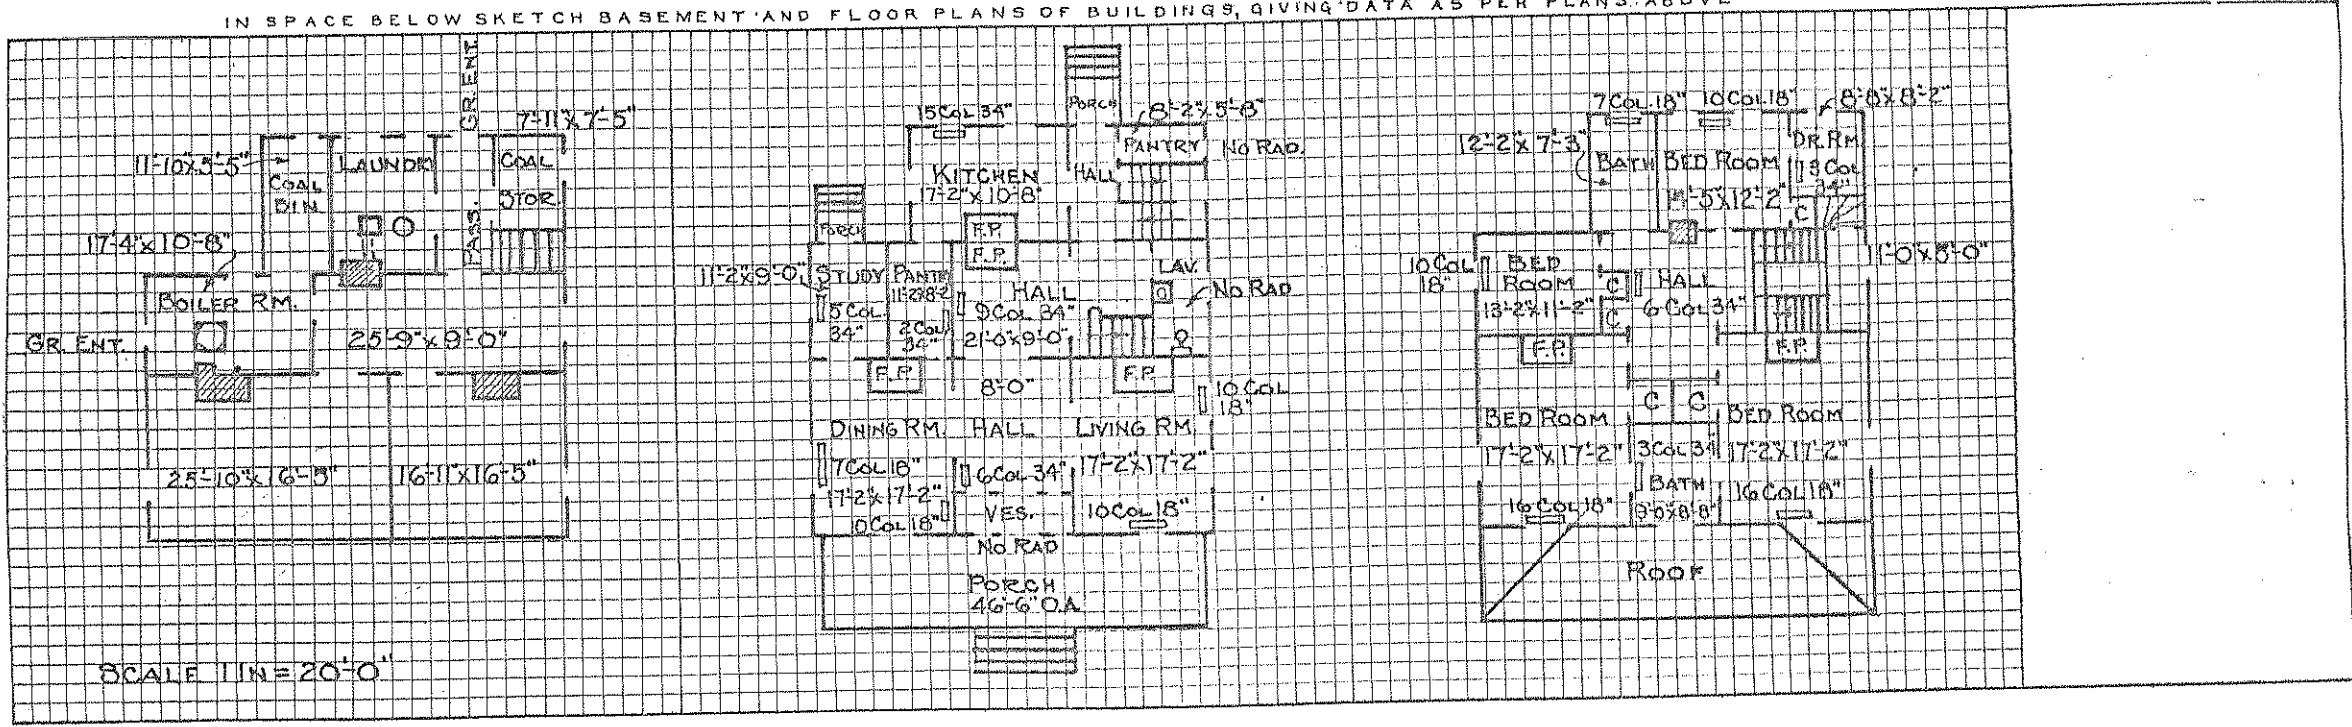 IN SPACE BELOW SKETCH BASEMENT AND FLOOR PLANS OF BUILDINGS, GIVING DATA AS PER PLANS ABOVE
GR. ENT.
7'-11"x7'-5"
11'-10"x5'-5"
COAL
BIN
LAUND
COAL
STOR.
PASS.
17'-4"x10'-8"
BOILER RM.
GR. ENT.
25'-9"x9'-0"
25'-10"x16'-5"
16'-11"x16'-5"
SCALE 1 IN = 20'-0"
15 COL 34"
PORCH
8'-2"x5'-8"
PANTRY
NO RAD.
KITCHEN
17'-2"x10'-8"
HALL
PORCH
F.P.
F.P.
11'-2"x9'-0"
STUDY
PANT
11'-2"x8'-2
HALL
LAV.
NO RAD
5 COL
34"
2 COL
34"
9 COL 34"
21'-0"x9'-0"
F.P.
8'-0"
F.P.
10 COL
18"
DINING RM.
HALL
LIVING RM.
7 COL 18"
6 COL 34"
17'-2"x17'-2"
17'-2"x17'-2"
10 COL 18"
VES.
10 COL 18"
NO RAD
PORCH
46'-6" O.A.
7 COL 18"
10 COL 18"
8'-8"x8'-2"
12'-2"x7'-3"
BATH
BED ROOM
DR. RM.
3 COL
34"
C
11'-0"x8'-0"
10 COL
18"
BED
ROOM
13'-2"x11'-2"
C
C
HALL
6 COL 34"
F.P.
F.P.
BED ROOM
C
C
BED ROOM
17'-2"x17'-2"
3 COL 34
17'-2"x17'-2"
BATH
16 COL 18"
16 COL 18"
ROOF